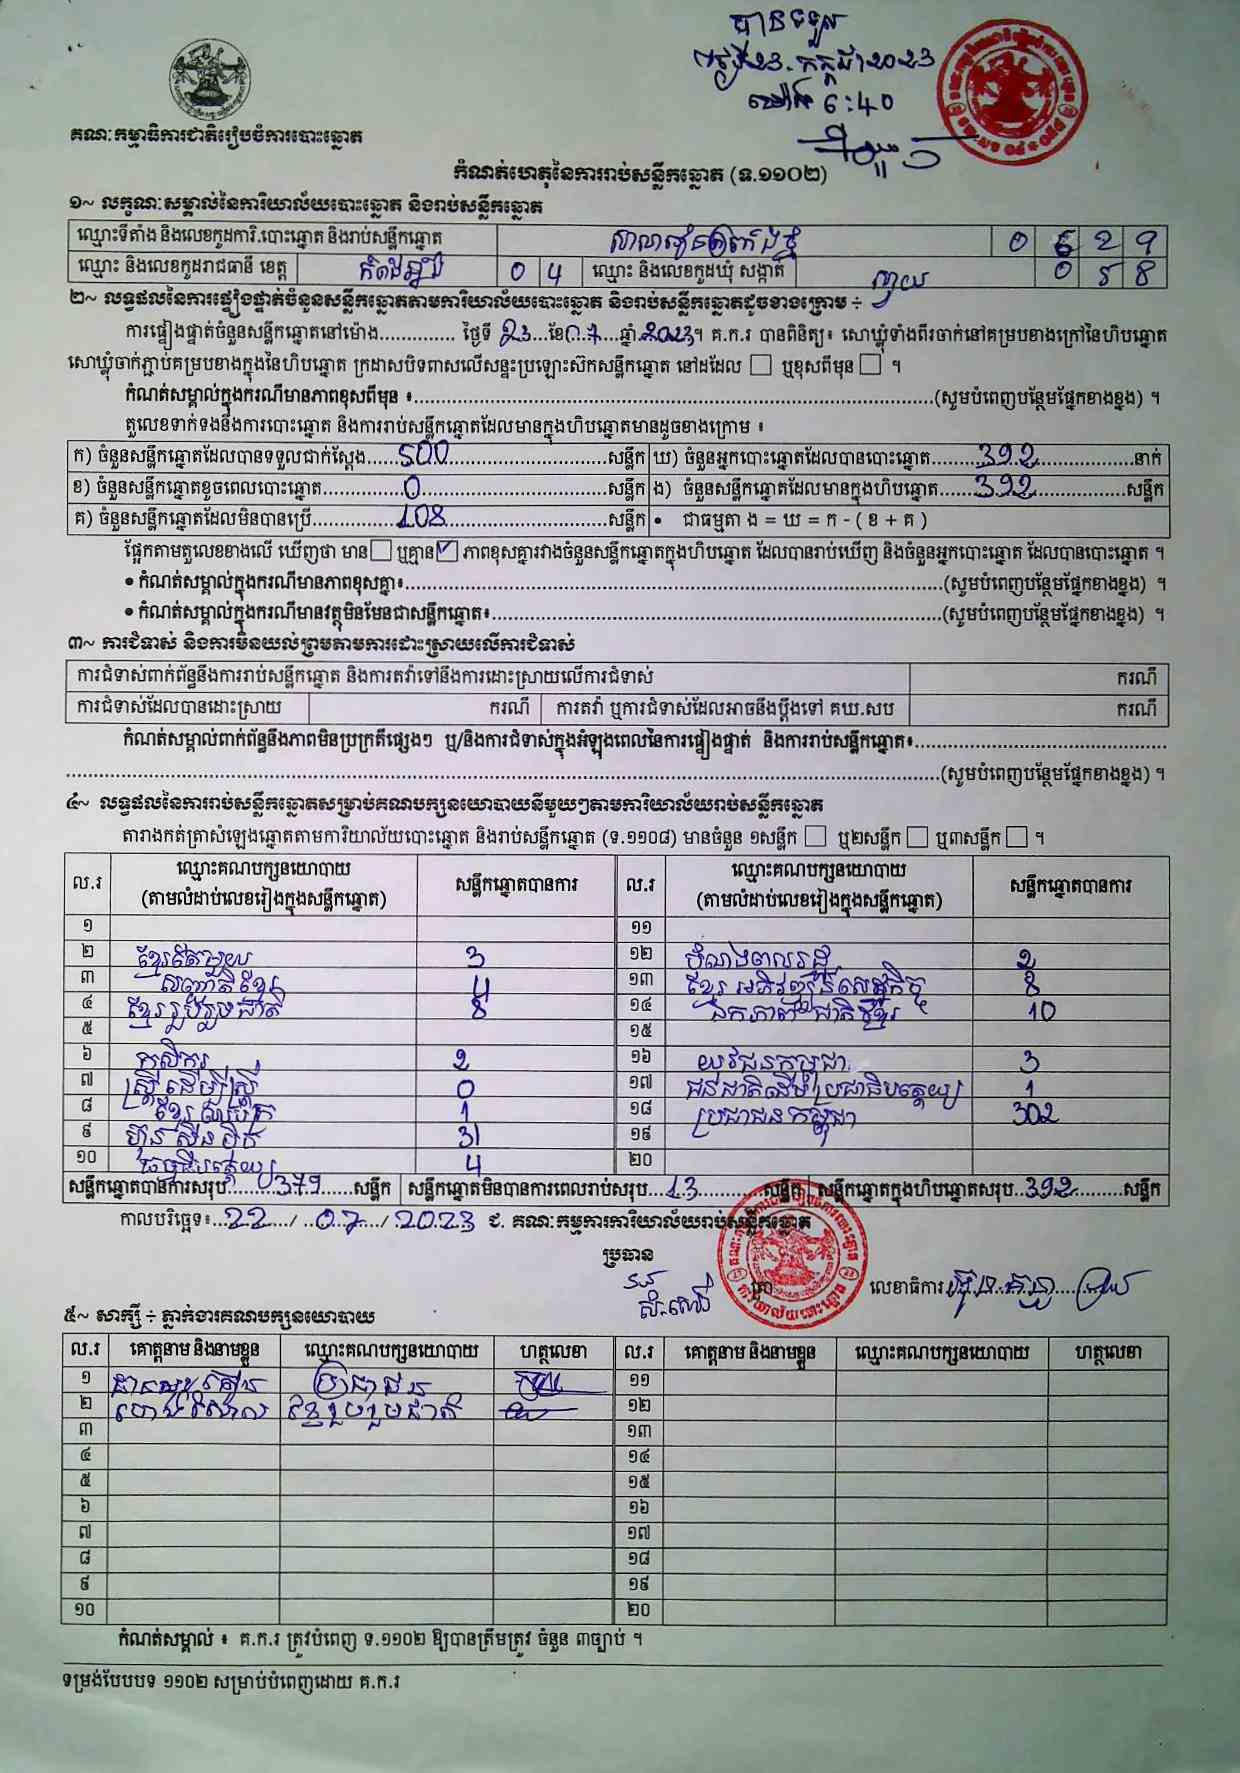 បានទទួល
ថ្ងៃទី23.កក្កដា2023
ម៉ោង 6:40
គណៈកម្មាធិការជាតិរៀបចំការបោះឆ្នោត
កំណត់ហេតុនៃការរាប់សន្លឹកឆ្នោត (ទ.១១០២)
១~ លក្ខណៈសម្គាល់នៃការិយាល័យបោះឆ្នោត និងរាប់សន្លឹកឆ្នោត
ឈ្មោះទីតាំង និងលេខកូដការិ.បោះឆ្នោត និងរាប់សន្លឹកឆ្នោត 0 6 2 9
ឈ្មោះ និងលេខកូដរាជធានី ខេត្ត កំពង់ឆ្នាំង 0 4 ឈ្មោះ និងលេខកូដឃុំ សង្កាត់ 0 5 8
២~ លទ្ធផលនៃការផ្ទៀងផ្ទាត់ចំនួនសន្លឹកឆ្នោតតាមការិយាល័យបោះឆ្នោត និងរាប់សន្លឹកឆ្នោតដូចខាងក្រោម ÷
ការផ្ទៀងផ្ទាត់ចំនួនសន្លឹកឆ្នោតនៅម៉ោង.............. ថ្ងៃទី 23 ខែ 07 ឆ្នាំ 2023។ គ.ក.រ បានពិនិត្យ៖ សោឃ្លុំទាំងពីរចាក់នៅគម្របខាងក្រៅនៃហិបឆ្នោត
សោឃ្លុំចាក់ភ្ជាប់គម្របខាងក្នុងនៃហិបឆ្នោត ក្រដាសបិទពាសលើសន្ទះប្រឡោះស៊កសន្លឹកឆ្នោត នៅដដែល ☐ ឬខុសពីមុន ☐ ។
កំណត់សម្គាល់ក្នុងករណីមានភាពខុសពីមុន ៖..............(សូមបំពេញបន្ថែមផ្នែកខាងខ្នង) ។
តួលេខទាក់ទងនឹងការបោះឆ្នោត និងការរាប់សន្លឹកឆ្នោតដែលមានក្នុងហិបឆ្នោតមានដូចខាងក្រោម ៖
ក) ចំនួនសន្លឹកឆ្នោតដែលបានទទួលជាក់ស្តែង......500......សន្លឹក ឃ) ចំនួនអ្នកបោះឆ្នោតដែលបានបោះឆ្នោត......392......នាក់
ខ) ចំនួនសន្លឹកឆ្នោតខូចពេលបោះឆ្នោត......0......សន្លឹក ង) ចំនួនសន្លឹកឆ្នោតដែលមានក្នុងហិបឆ្នោត......392......សន្លឹក
គ) ចំនួនសន្លឹកឆ្នោតដែលមិនបានប្រើ......108......សន្លឹក • ជាធម្មតា ង = ឃ = ក - ( ខ + គ )
ផ្អែកតាមតួលេខខាងលើ ឃើញថា មាន ☐ ឬគ្មាន ☑ ភាពខុសគ្នារវាងចំនួនសន្លឹកឆ្នោតក្នុងហិបឆ្នោត ដែលបានរាប់ឃើញ និងចំនួនអ្នកបោះឆ្នោត ដែលបានបោះឆ្នោត ។
• កំណត់សម្គាល់ក្នុងករណីមានភាពខុសគ្នា៖..............(សូមបំពេញបន្ថែមផ្នែកខាងខ្នង) ។
• កំណត់សម្គាល់ក្នុងករណីមានវត្ថុមិនមែនជាសន្លឹកឆ្នោត៖..............(សូមបំពេញបន្ថែមផ្នែកខាងខ្នង) ។
៣~ ការជំទាស់ និងការមិនយល់ព្រមតាមការដោះស្រាយលើការជំទាស់
ការជំទាស់ពាក់ព័ន្ធនឹងការរាប់សន្លឹកឆ្នោត និងការតវ៉ាទៅនឹងការដោះស្រាយលើការជំទាស់ ករណី
ការជំទាស់ដែលបានដោះស្រាយ ករណី ការតវ៉ា ឬការជំទាស់ដែលអាចនឹងប្តឹងទៅ គឃ.សប ករណី
កំណត់សម្គាល់ពាក់ព័ន្ធនឹងភាពមិនប្រក្រតីផ្សេងៗ ឬ/និងការជំទាស់ក្នុងអំឡុងពេលនៃការផ្ទៀងផ្ទាត់ និងការរាប់សន្លឹកឆ្នោត៖..............
..............(សូមបំពេញបន្ថែមផ្នែកខាងខ្នង) ។
៤~ លទ្ធផលនៃការរាប់សន្លឹកឆ្នោតសម្រាប់គណបក្សនយោបាយនីមួយៗតាមការិយាល័យរាប់សន្លឹកឆ្នោត
តារាងកត់ត្រាសំឡេងឆ្នោតតាមការិយាល័យបោះឆ្នោត និងរាប់សន្លឹកឆ្នោត (ទ.១១០៨) មានចំនួន ១សន្លឹក ☐ ឬ២សន្លឹក ☐ ឬ៣សន្លឹក ☐ ។
ល.រ ឈ្មោះគណបក្សនយោបាយ (តាមលំដាប់លេខរៀងក្នុងសន្លឹកឆ្នោត) សន្លឹកឆ្នោតបានការ ល.រ ឈ្មោះគណបក្សនយោបាយ (តាមលំដាប់លេខរៀងក្នុងសន្លឹកឆ្នោត) សន្លឹកឆ្នោតបានការ
១ ១១
២ ខ្មែរតែមួយ 3 ១២ បំណងពលរដ្ឋ 2
៣ សញ្ជាតិខ្មែរ 4 ១៣ ខ្មែរ អភិវឌ្ឍន៍សេដ្ឋកិច្ច 8
៤ ខ្មែររួបរួមជាតិ 8 ១៤ ឯកភាពជាតិខ្មែរ 10
៥ ១៥
៦ កសិករ 2 ១៦ យុវជនកម្ពុជា 3
៧ ស្ត្រីដើម្បីស្ត្រី 0 ១៧ ជនជាតិដើមប្រជាធិបតេយ្យ 1
៨ ខ្មែរ 1 ១៨ ប្រជាជនកម្ពុជា 302
៩ ហ៊្វុនស៊ិនប៉ិច 31 ១៩
១០ ធម្មាធិបតេយ្យ 4 ២០
សន្លឹកឆ្នោតបានការសរុប......379......សន្លឹក សន្លឹកឆ្នោតមិនបានការពេលរាប់សរុប...13......សន្លឹក សន្លឹកឆ្នោតក្នុងហិបឆ្នោតសរុប..392......សន្លឹក
កាលបរិច្ឆេទ៖...22.../...07.../...2023 ជ. គណៈកម្មការការិយាល័យរាប់សន្លឹកឆ្នោត
ប្រធាន
ត្រា លេខាធិការ
៥~ សាក្សី ÷ ភ្នាក់ងារគណបក្សនយោបាយ
ល.រ គោត្តនាម និងនាមខ្លួន ឈ្មោះគណបក្សនយោបាយ ហត្ថលេខា ល.រ គោត្តនាម និងនាមខ្លួន ឈ្មោះគណបក្សនយោបាយ ហត្ថលេខា
១ ប្រជាជន ១១
២ ខ្មែររួបរួមជាតិ ១២
៣ ១៣
៤ ១៤
៥ ១៥
៦ ១៦
៧ ១៧
៨ ១៨
៩ ១៩
១០ ២០
កំណត់សម្គាល់ ៖ គ.ក.រ ត្រូវបំពេញ ទ.១១០២ ឱ្យបានត្រឹមត្រូវ ចំនួន ៣ច្បាប់ ។
ទម្រង់បែបបទ ១១០២ សម្រាប់បំពេញដោយ គ.ក.រ